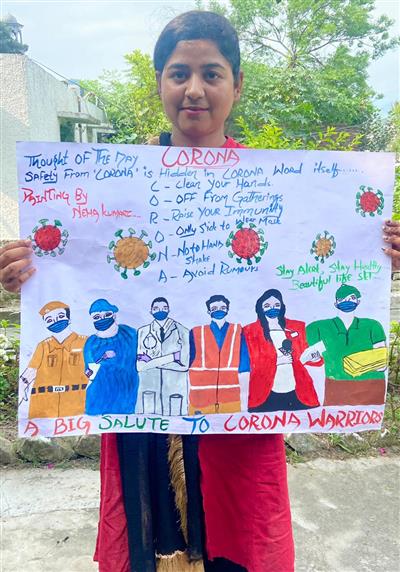 Thought Of The Day CORONA
SAFETY From 'CORONA' is Hidden in CORONA Word itself......
PAINTING BY
NEHA KUMARI...
C - Clean Your Hands.
O - OFF From Gatherings
R - Raise YOUR Immunity
O - Only Stick to Wear Mask
N - No to Hand Shake
A - Avoid Rumours
Stay Alert, Stay Healthy
Beautiful like
A BIG SALUTE TO CORONA WARRIORS